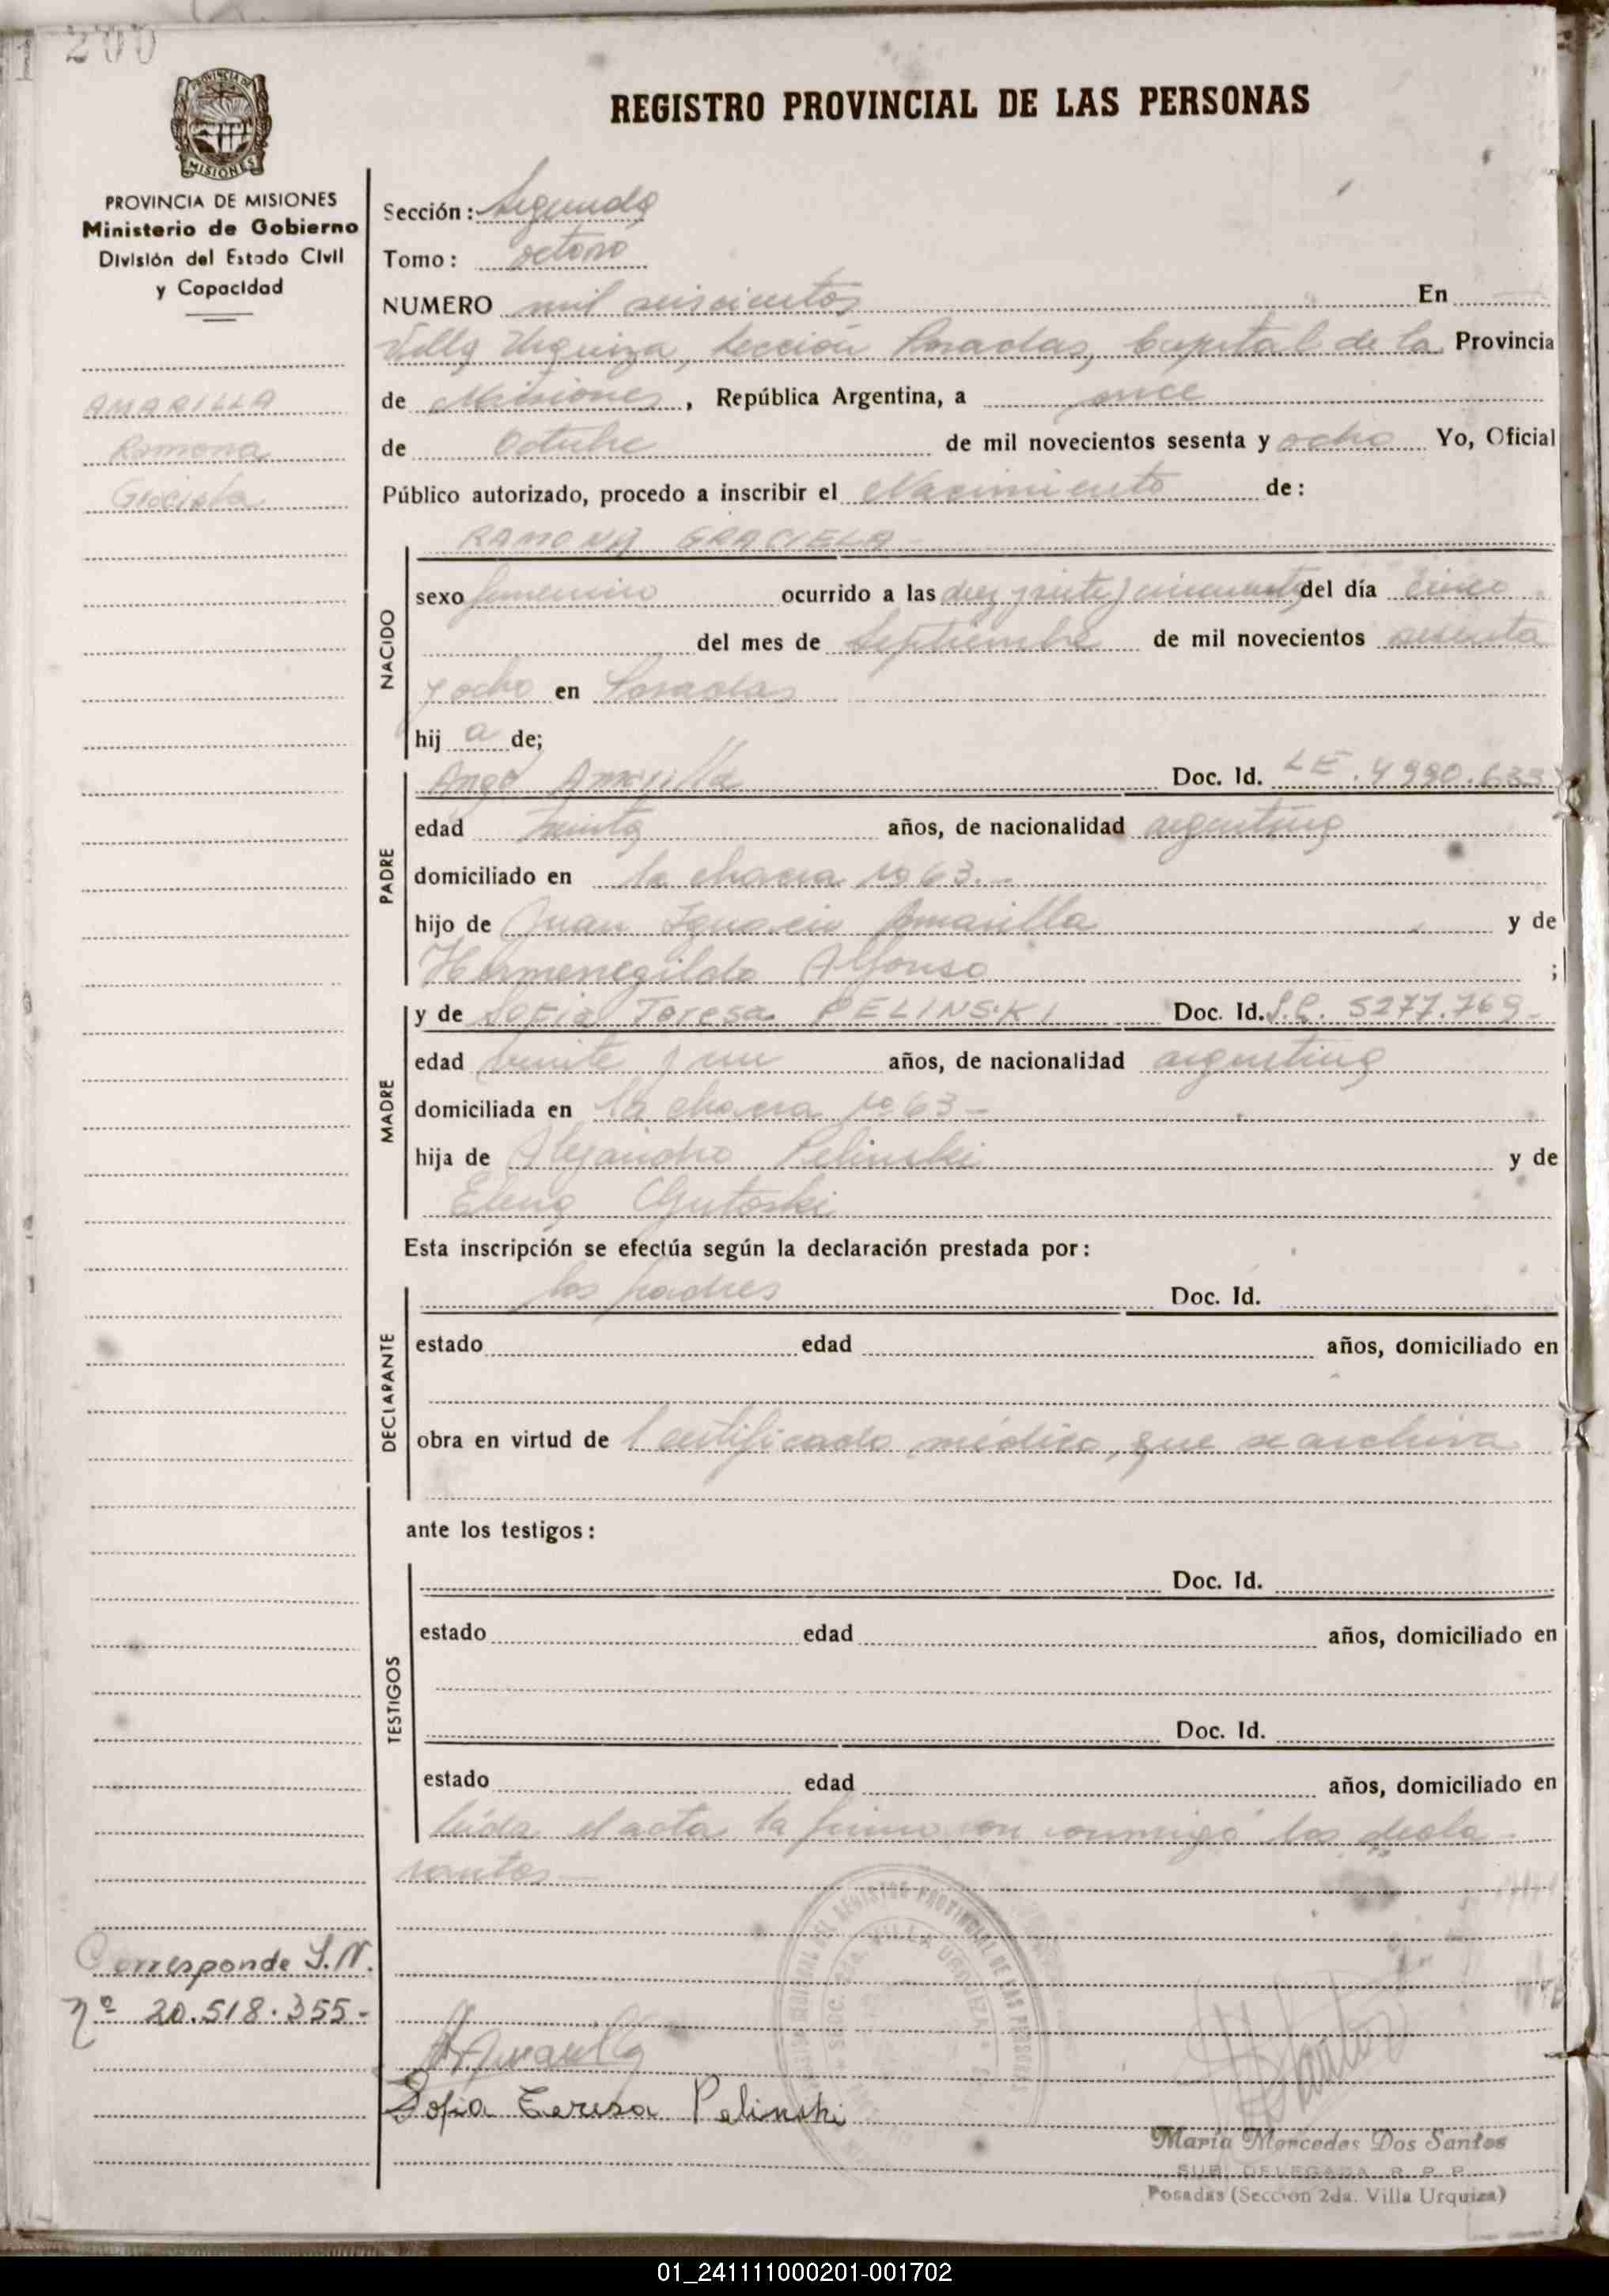 200
REGISTRO PROVINCIAL DE LAS PERSONAS
PROVINCIA DE MISIONES
Ministerio de Gobierno
División del Estado Civil
y Capacidad
AMARILLA
Ramona
Graciela
Sección: Segunda
Tomo: octavo
NUMERO mil seiscientos En
Villa Urquiza, Sección Posadas, Capital de la Provincia
de Misiones, República Argentina, a once
de Octubre de mil novecientos sesenta y ocho Yo, Oficial
Público autorizado, procedo a inscribir el Nacimiento de:
RAMONA GRACIELA
NACIDO
sexo femenino ocurrido a las diez y siete y cincuenta del día cinco
del mes de Septiembre de mil novecientos sesenta
y ocho en Posadas
hij a de;
PADRE
Amarilla Doc. Id. LE. 4990.633
edad treinta años, de nacionalidad argentina
domiciliado en la chacra no 63.-
hijo de Juan Ignacio Amarilla y de
Hermenegilda Alfonso ;
MADRE
y de Sofia Teresa PELINSKI Doc. Id. L.C. 5277.769-
edad veinte y un años, de nacionalidad argentina
domiciliada en la chacra no 63-
hija de Alejandro Pelinski y de
Elena
Esta inscripción se efectúa según la declaración prestada por:
DECLARANTE
los padres Doc. Id.
estado edad años, domiciliado en
obra en virtud de l certificado médico, que se archiva
ante los testigos:
TESTIGOS
Doc. Id.
estado edad años, domiciliado en
Doc. Id.
estado edad años, domiciliado en
leída el acta la firman con conmigo los decla-
rantes-
Corresponde I.N.
nº 20.518.355-
Amarilla
Sofia Teresa Pelinski
María Mercedes Dos Santos
SUB DELEGADA R. P. P.
Posadas (Sección 2da. Villa Urquiza)
01_241111000201-001702